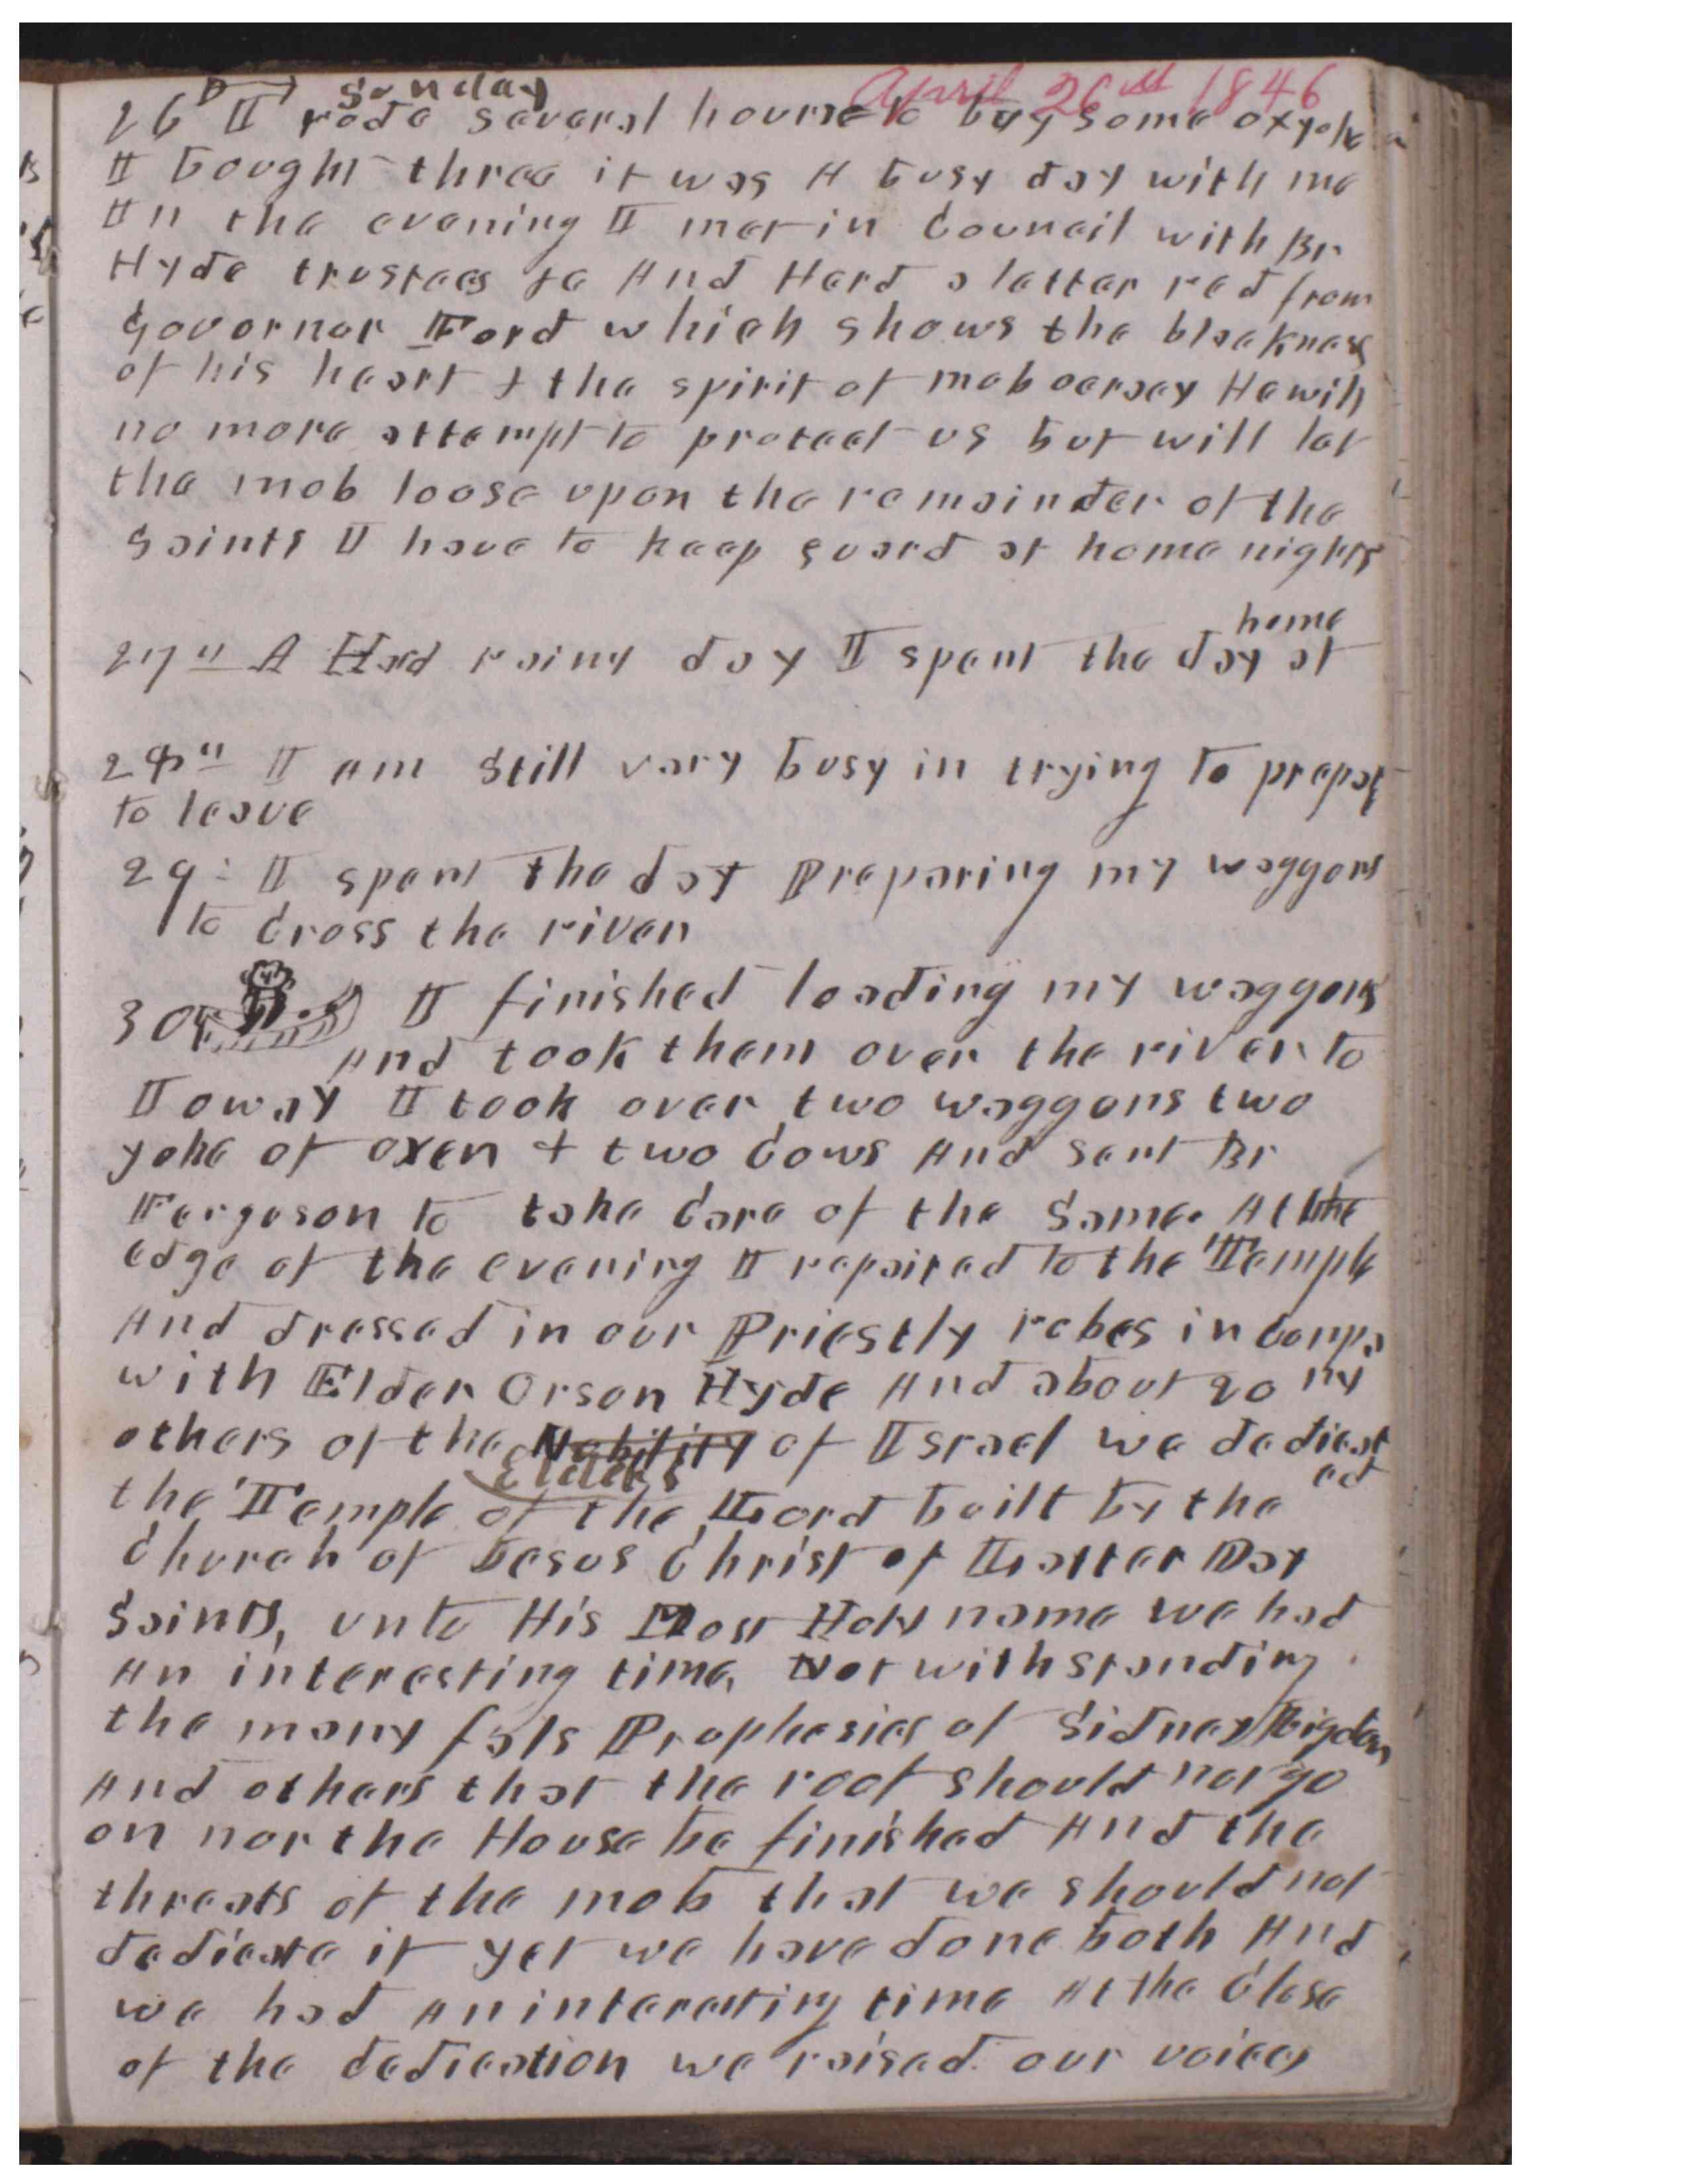 April 26th 1846
Sunday
26 I rode several hours to buy some ox yoke
I bought three it was A busy day with me
In the evening I met in Council with Br
Hyde trustees &c And Herd a letter red from
Governor Ford which shows the blackness
of his heart & the spirit of mobocracy He will
no more attempt to protect us but will let
the mob loose upon the remainder of the
Saints I have to keep guard at home nights
home
27th A Hard rainy day I spent the day at
28th I am still very busy in trying to prepare
to leave
29th I spent the day Preparing my waggons
to Cross the river
30 I finished loading my waggons
And took them over the river to
Ioway I took over two waggons two
yoke of oxen & two Cows And sent Br
Ferguson to take Care of the Same. At the
edge of the evening I repaired to the Temple
And dressed in our Priestly robes in Compa
with Elder Orson Hyde And about 20 ny
others of the Nobility of Israel we dedicat
Elders ed
the Temple of the Lord built by the
Church of Jesus Christ of Latter Day
Saints, unto His Most Holy name we had
An interesting time. Notwithstanding
the many fals Prophesies of Sidney Rigdon
And others that the roof should not go
on nor the House be finished And the
threats of the mob that we should not
dedicate it yet we have done both And
we had An interesting time At the Close
of the dedication we raised our voices